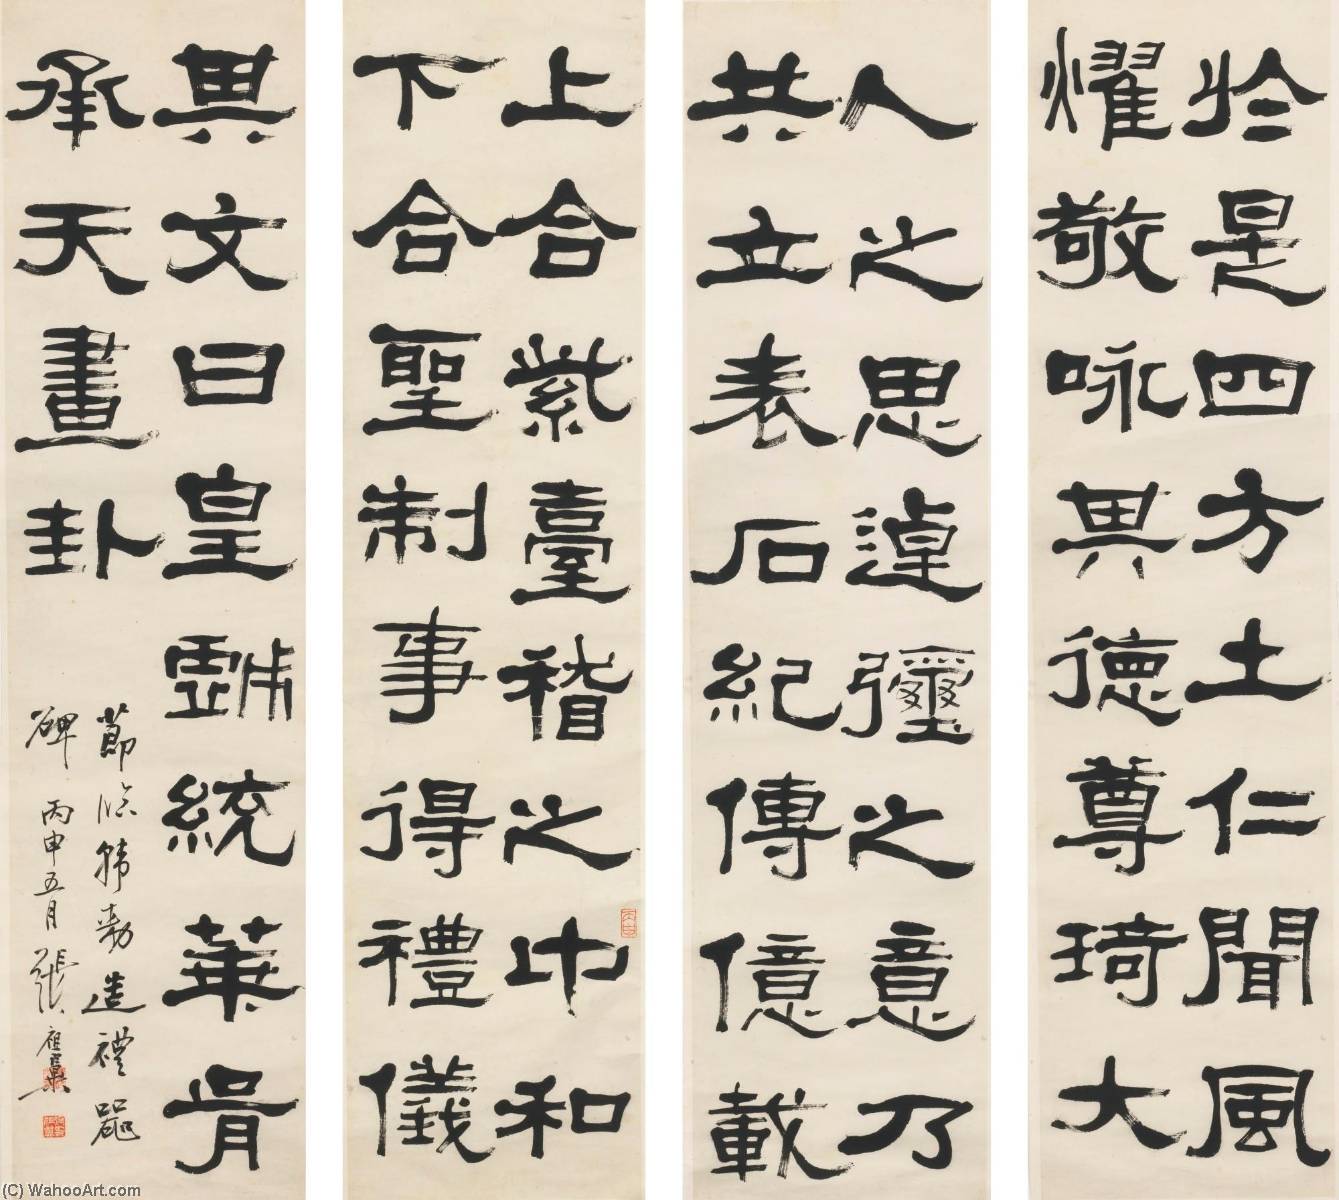 於是四方土仁聞風
燿敬咏其德尊琦大
人之思逴彌之意乃
共立表石紀傳億載
上合紫臺稽之中和
下合聖制事得禮儀
其文曰皇戲統華胥
承天畫卦
節臨韓勑造禮器
碑 丙申五月 張祖翼
(C) WahooArt.com